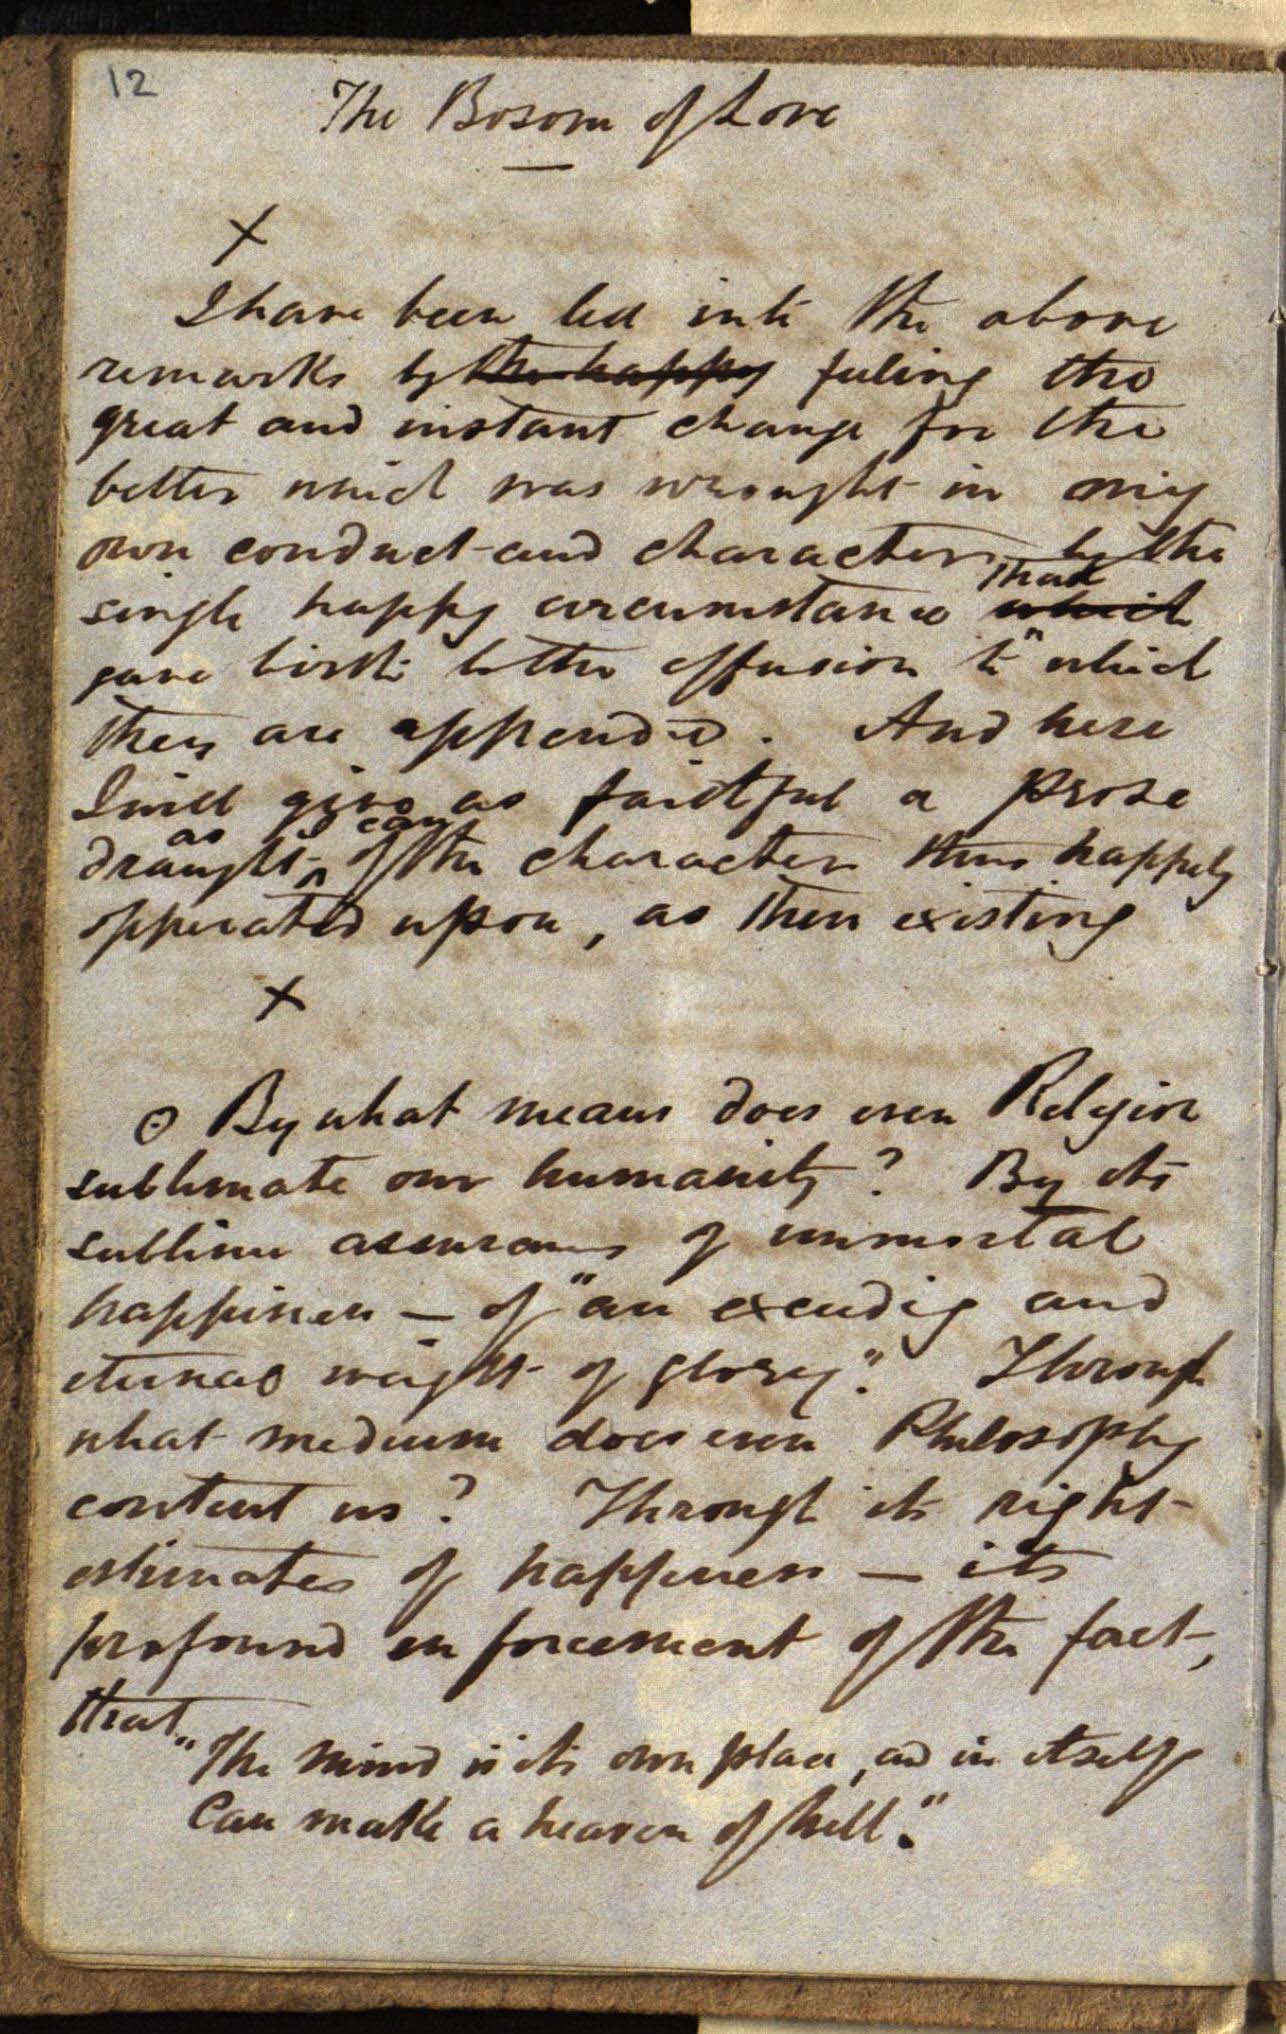 12
The Bosom of Love
X
I have been led into the above
remarks by the happy feeling the
great and instant change for the
better which was wrought in my
own conduct and character by the
single happy circumstance which that
gave birth to the effusion to "which
they are appended. And here
I will give as faithful a prose
draught as I can of the character thus happily
opperated upon, as then existing
X
⊙ By what means does even Religion
sublimate our humanity? By its
sublime assurances of immortal
happiness — of "an exceeding and
eternal weight of glory". Through
what medium does even Philosophy
content us? Through its right
estimates of happiness — its
profound enforcement of the fact,
that
"The mind is its own place, and in itself
Can make a heaven of hell."